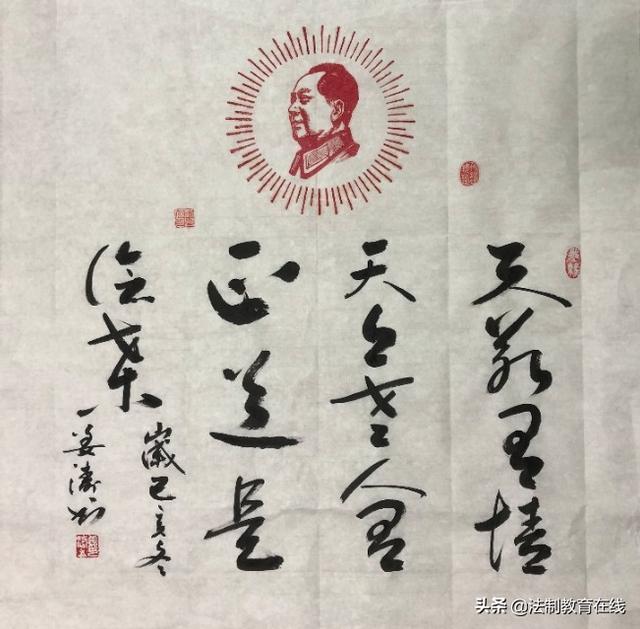 天若有情
天亦老人间
正道是
沧桑
歲己亥冬
姜涛
头条 @法制教育在线